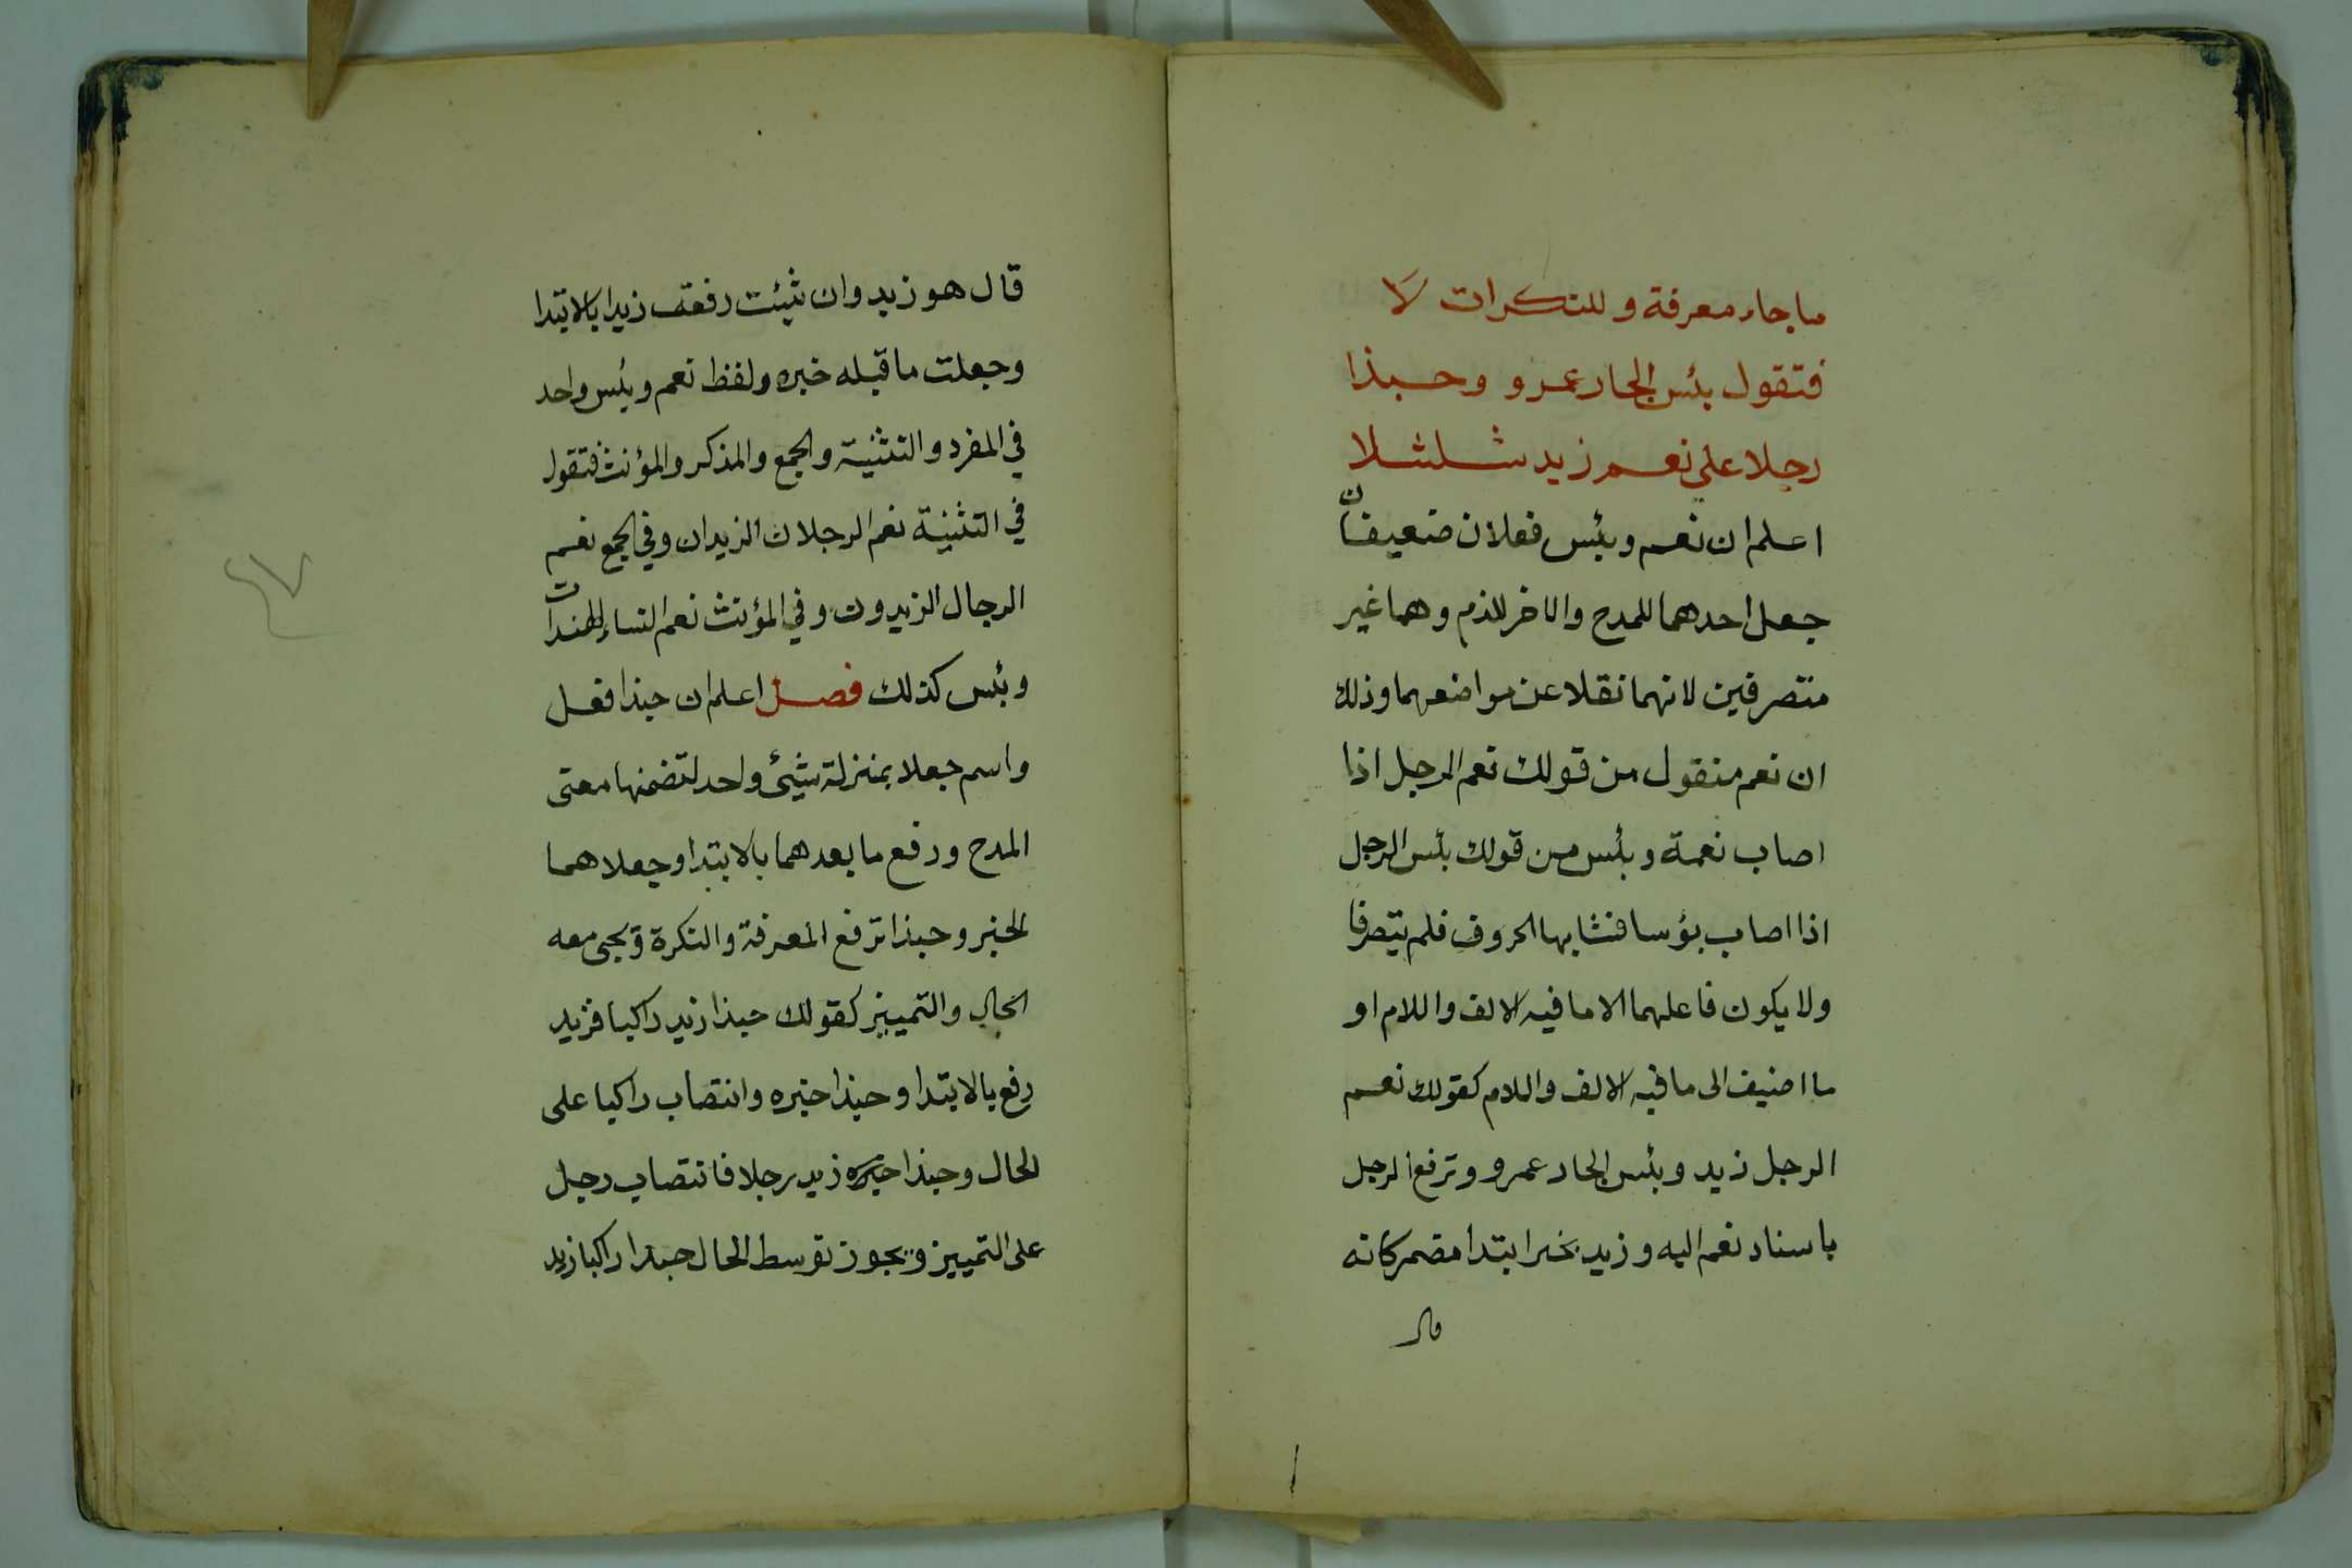 ما جاء معرفة وللنكرات لا
فتقول بئس الجار عمرو وحبذا
رجلا على نعم زيد شلشلا
اعلم ان نعم وبئس فعلان ضعيفان
جعل احدهما للمدح والاخر للذم وهما غير
متصرفين لانهما نقلا عن مواضعهما وذلك
ان نعم منقول من قولك نعم الرجل اذا
اصاب نعمة وبئس من قولك بئس الرجل
اذا اصاب بؤسا فتشابها الحروف فلم يتصرفا
ولا يكون فاعلهما الا ما فيه الالف واللام او
ما اضيف الى ما فيه الالف واللام كقولك نعم
الرجل زيد وبئس الجار عمرو وترفع الرجل
باسناد نعم اليه وزيد بخبر ابتدا مضمر كانه
قال
قال هو زيد وان شئت رفعت زيدا بالابتدا
وجعلت ما قبله خبره ولفظ نعم وبئس واحد
في المفرد والتثنية والجمع والمذكر والمؤنث فتقول
في التثنية نعم الرجلان الزيدان وفي الجمع نعم
الرجال الزيدون وفي المؤنث نعم النساء الهندات
وبئس كذلك فصل اعلم ان حبذا فعل
واسم جعلا بمنزلة شيئ واحد لتضمنها معنى
المدح ورفع ما بعدهما بالابتدا وجعلا هما
الخبر وحبذا ترفع المعرفة والنكرة ويجى معه
الحال والتمييز كقولك حبذا زيد راكبا فزيد
رفع بالابتدا وحبذا خبره وانتصاب راكبا على
الحال وحبذا خبره زيد رجلا فانتصاب رجل
على التمييز ويجوز توسط الحال حبذا راكبا زيد